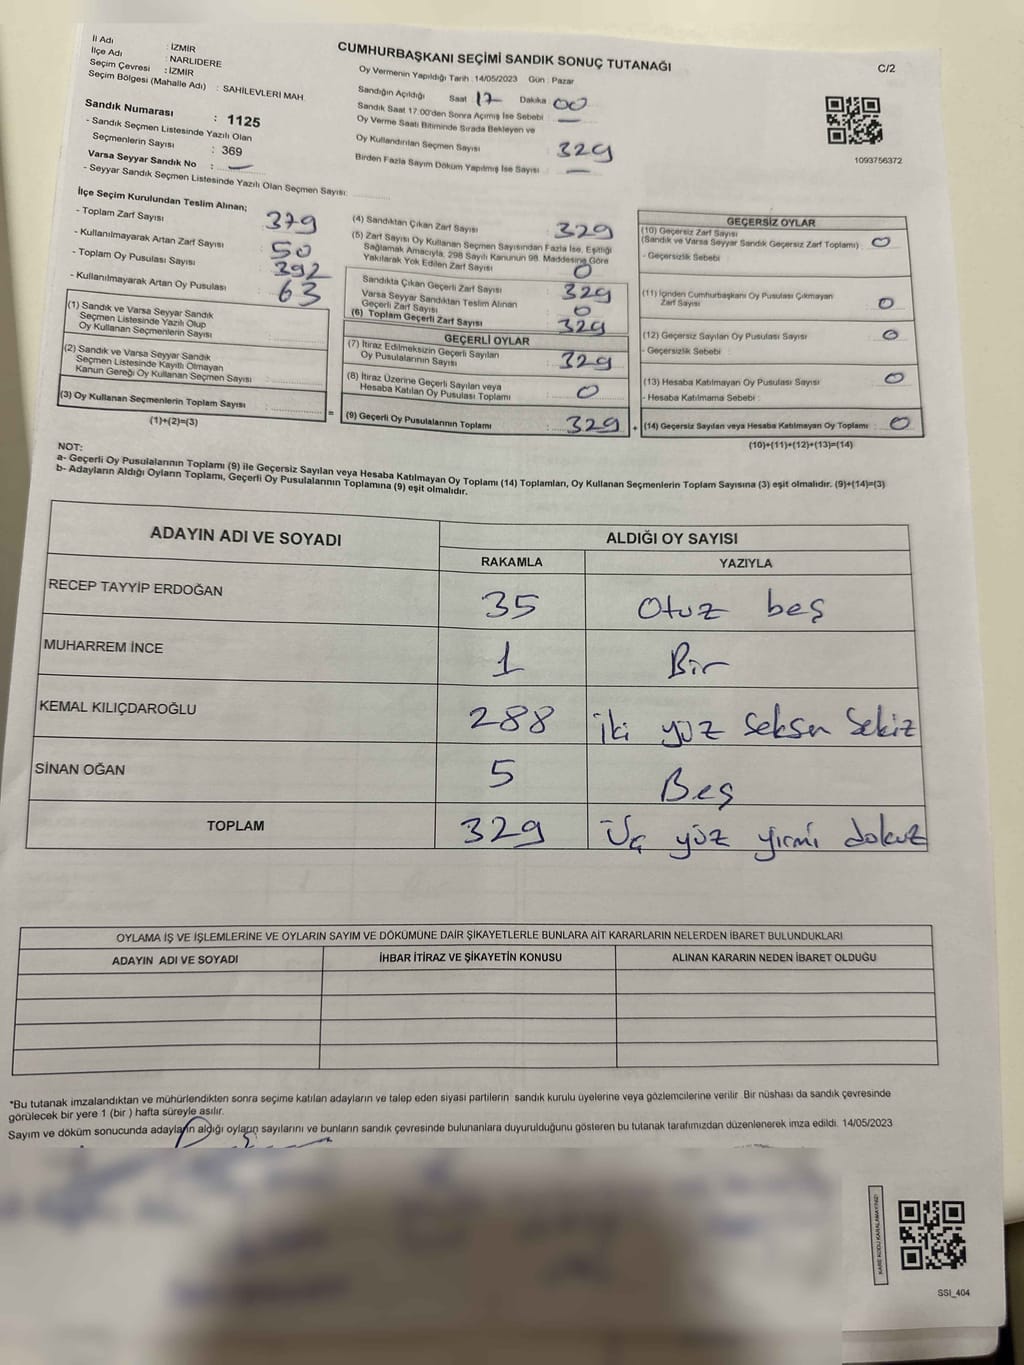 İl Adı : İZMİR
İlçe Adı : NARLIDERE
Seçim Çevresi : İZMİR
Seçim Bölgesi (Mahalle Adı) : SAHİLEVLERİ MAH
CUMHURBAŞKANI SEÇİMİ SANDIK SONUÇ TUTANAĞI
C/2
Oy Vermenin Yapıldığı Tarih : 14/05/2023 Gün : Pazar
Sandığın Açıldığı Saat 17 Dakika 00
Sandık Saat 17:00'den Sonra Açımış İse Sebebi : —
Oy Verme Saati Bitiminde Sırada Bekleyen ve
Oy Kullandırılan Seçmen Sayısı : 329
Birden Fazla Sayım Döküm Yapılmış İse Sayısı : —
1093756372
Sandık Numarası : 1125
- Sandık Seçmen Listesinde Yazılı Olan
Seçmenlerin Sayısı : 369
Varsa Seyyar Sandık No : —
- Seyyar Sandık Seçmen Listesinde Yazılı Olan Seçmen Sayısı:
İlçe Seçim Kurulundan Teslim Alınan;
- Toplam Zarf Sayısı : 379
- Kullanılmayarak Artan Zarf Sayısı : 50
- Toplam Oy Pusulası Sayısı : 392
- Kullanılmayarak Artan Oy Pusulası : 63
(1) Sandık ve Varsa Seyyar Sandık
Seçmen Listesinde Yazılı Olup
Oy Kullanan Seçmenlerin Sayısı :
(2) Sandık ve Varsa Seyyar Sandık
Seçmen Listesinde Kayıtlı Olmayan
Kanun Gereği Oy Kullanan Seçmen Sayısı :
(3) Oy Kullanan Seçmenlerin Toplam Sayısı :
(1)+(2)=(3)
(4) Sandıktan Çıkan Zarf Sayısı : 329
(5) Zarf Sayısı Oy Kullanan Seçmen Sayısından Fazla İse, Eşitliği
Sağlamak Amacıyla, 298 Sayılı Kanunun 98. Maddesine Göre
Yakılarak Yok Edilen Zarf Sayısı : 0
Sandıkta Çıkan Geçerli Zarf Sayısı : 329
Varsa Seyyar Sandıktan Teslim Alınan
Geçerli Zarf Sayısı : 0
(6) Toplam Geçerli Zarf Sayısı : 329
GEÇERLİ OYLAR
(7) İtiraz Edilmeksizin Geçerli Sayılan
Oy Pusulalarının Sayısı : 329
(8) İtiraz Üzerine Geçerli Sayılan veya
Hesaba Katılan Oy Pusulası Toplamı : 0
(9) Geçerli Oy Pusulalarının Toplamı : 329
=
+
GEÇERSİZ OYLAR
(10) Geçersiz Zarf Sayısı
(Sandık ve Varsa Seyyar Sandık Geçersiz Zarf Toplamı) : 0
- Geçersizlik Sebebi :
(11) İçinden Cumhurbaşkanı Oy Pusulası Çıkmayan
Zarf Sayısı : 0
(12) Geçersiz Sayılan Oy Pusulası Sayısı : 0
- Geçersizlik Sebebi :
(13) Hesaba Katılmayan Oy Pusulası Sayısı : 0
- Hesaba Katılmama Sebebi :
(14) Geçersiz Sayılan veya Hesaba Katılmayan Oy Toplamı : 0
(10)+(11)+(12)+(13)=(14)
NOT:
a- Geçerli Oy Pusulalarının Toplamı (9) ile Geçersiz Sayılan veya Hesaba Katılmayan Oy Toplamı (14) Toplamları, Oy Kullanan Seçmenlerin Toplam Sayısına (3) eşit olmalıdır. (9)+(14)=(3)
b- Adayların Aldığı Oyların Toplamı, Geçerli Oy Pusulalarının Toplamına (9) eşit olmalıdır.
ADAYIN ADI VE SOYADI ALDIĞI OY SAYISI
RAKAMLA YAZIYLA
RECEP TAYYİP ERDOĞAN 35 Otuz beş
MUHARREM İNCE 1 Bir
KEMAL KILIÇDAROĞLU 288 iki yüz seksen sekiz
SİNAN OĞAN 5 Beş
TOPLAM 329 Üç yüz yirmi dokuz
OYLAMA İŞ VE İŞLEMLERİNE VE OYLARIN SAYIM VE DÖKÜMÜNE DAİR ŞİKAYETLERLE BUNLARA AİT KARARLARIN NELERDEN İBARET BULUNDUKLARI
ADAYIN ADI VE SOYADI İHBAR İTİRAZ VE ŞİKAYETİN KONUSU ALINAN KARARIN NEDEN İBARET OLDUĞU
*Bu tutanak imzalandıktan ve mühürlendikten sonra seçime katılan adayların ve talep eden siyasi partilerin sandık kurulu üyelerine veya gözlemcilerine verilir. Bir nüshası da sandık çevresinde
görülecek bir yere 1 (bir ) hafta süreyle asılır.
Sayım ve döküm sonucunda adayların aldığı oyların sayılarını ve bunların sandık çevresinde bulunanlara duyurulduğunu gösteren bu tutanak tarafımızdan düzenlenerek imza edildi. 14/05/2023
KARE KODU KARALAMAYINIZ!
SSI_404